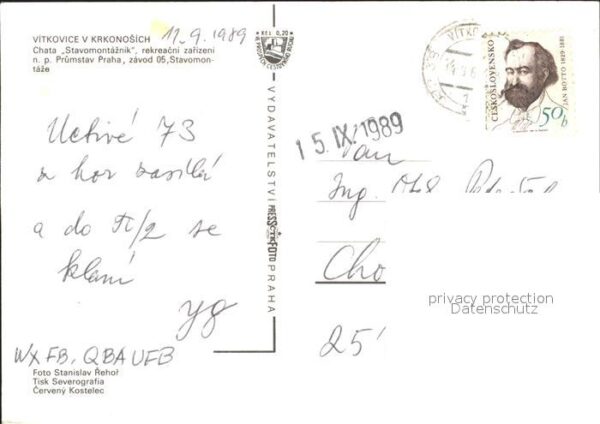 VÍTKOVICE V KRKONOŠÍCH
11. 9. 1989
Chata „Stavomontážník", rekreační zařízení
n. p. Průmstav Praha, závod 05, Stavomon-
táže
Uctivé 73
z hor zasílá
a do π/2 se
klaní
yg
WX FB, QBA UFB
Foto Stanislav Řehoř
Tisk Severografia
Červený Kostelec
KčS 0,20
VYDAVATELSTVÍ PRESSFOTO PRAHA
VÍTKO
ČESKOSLOVENSKO
JAN BOTTO 1829-1881
50 h
15. IX. 1989
Pan
Ing.
Cho
25
privacy protection
Datenschutz